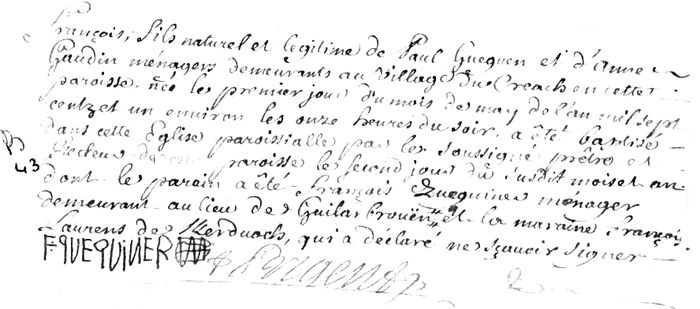 François, fils naturel et legitime de Paul Gueguen et d'anne
Gaudin ménagers demeurants au village du Creach en cette
paroisse. née le premier jour du mois de may de l'an mil sept
centz et un environ les onze heures du soir. a été baptisé
dans cette Eglise paroissialle par le soussigné prêtre et
Recteur de paroisse le second jour du susdit mois et an
dont le parain a été François Quequiner ménager
demeurant au lieu de Guilarbrouën, et la maraine François
Laurens de Kerduoch, qui a déclaré ne sçavoir signer
F·QUEQUINER
43